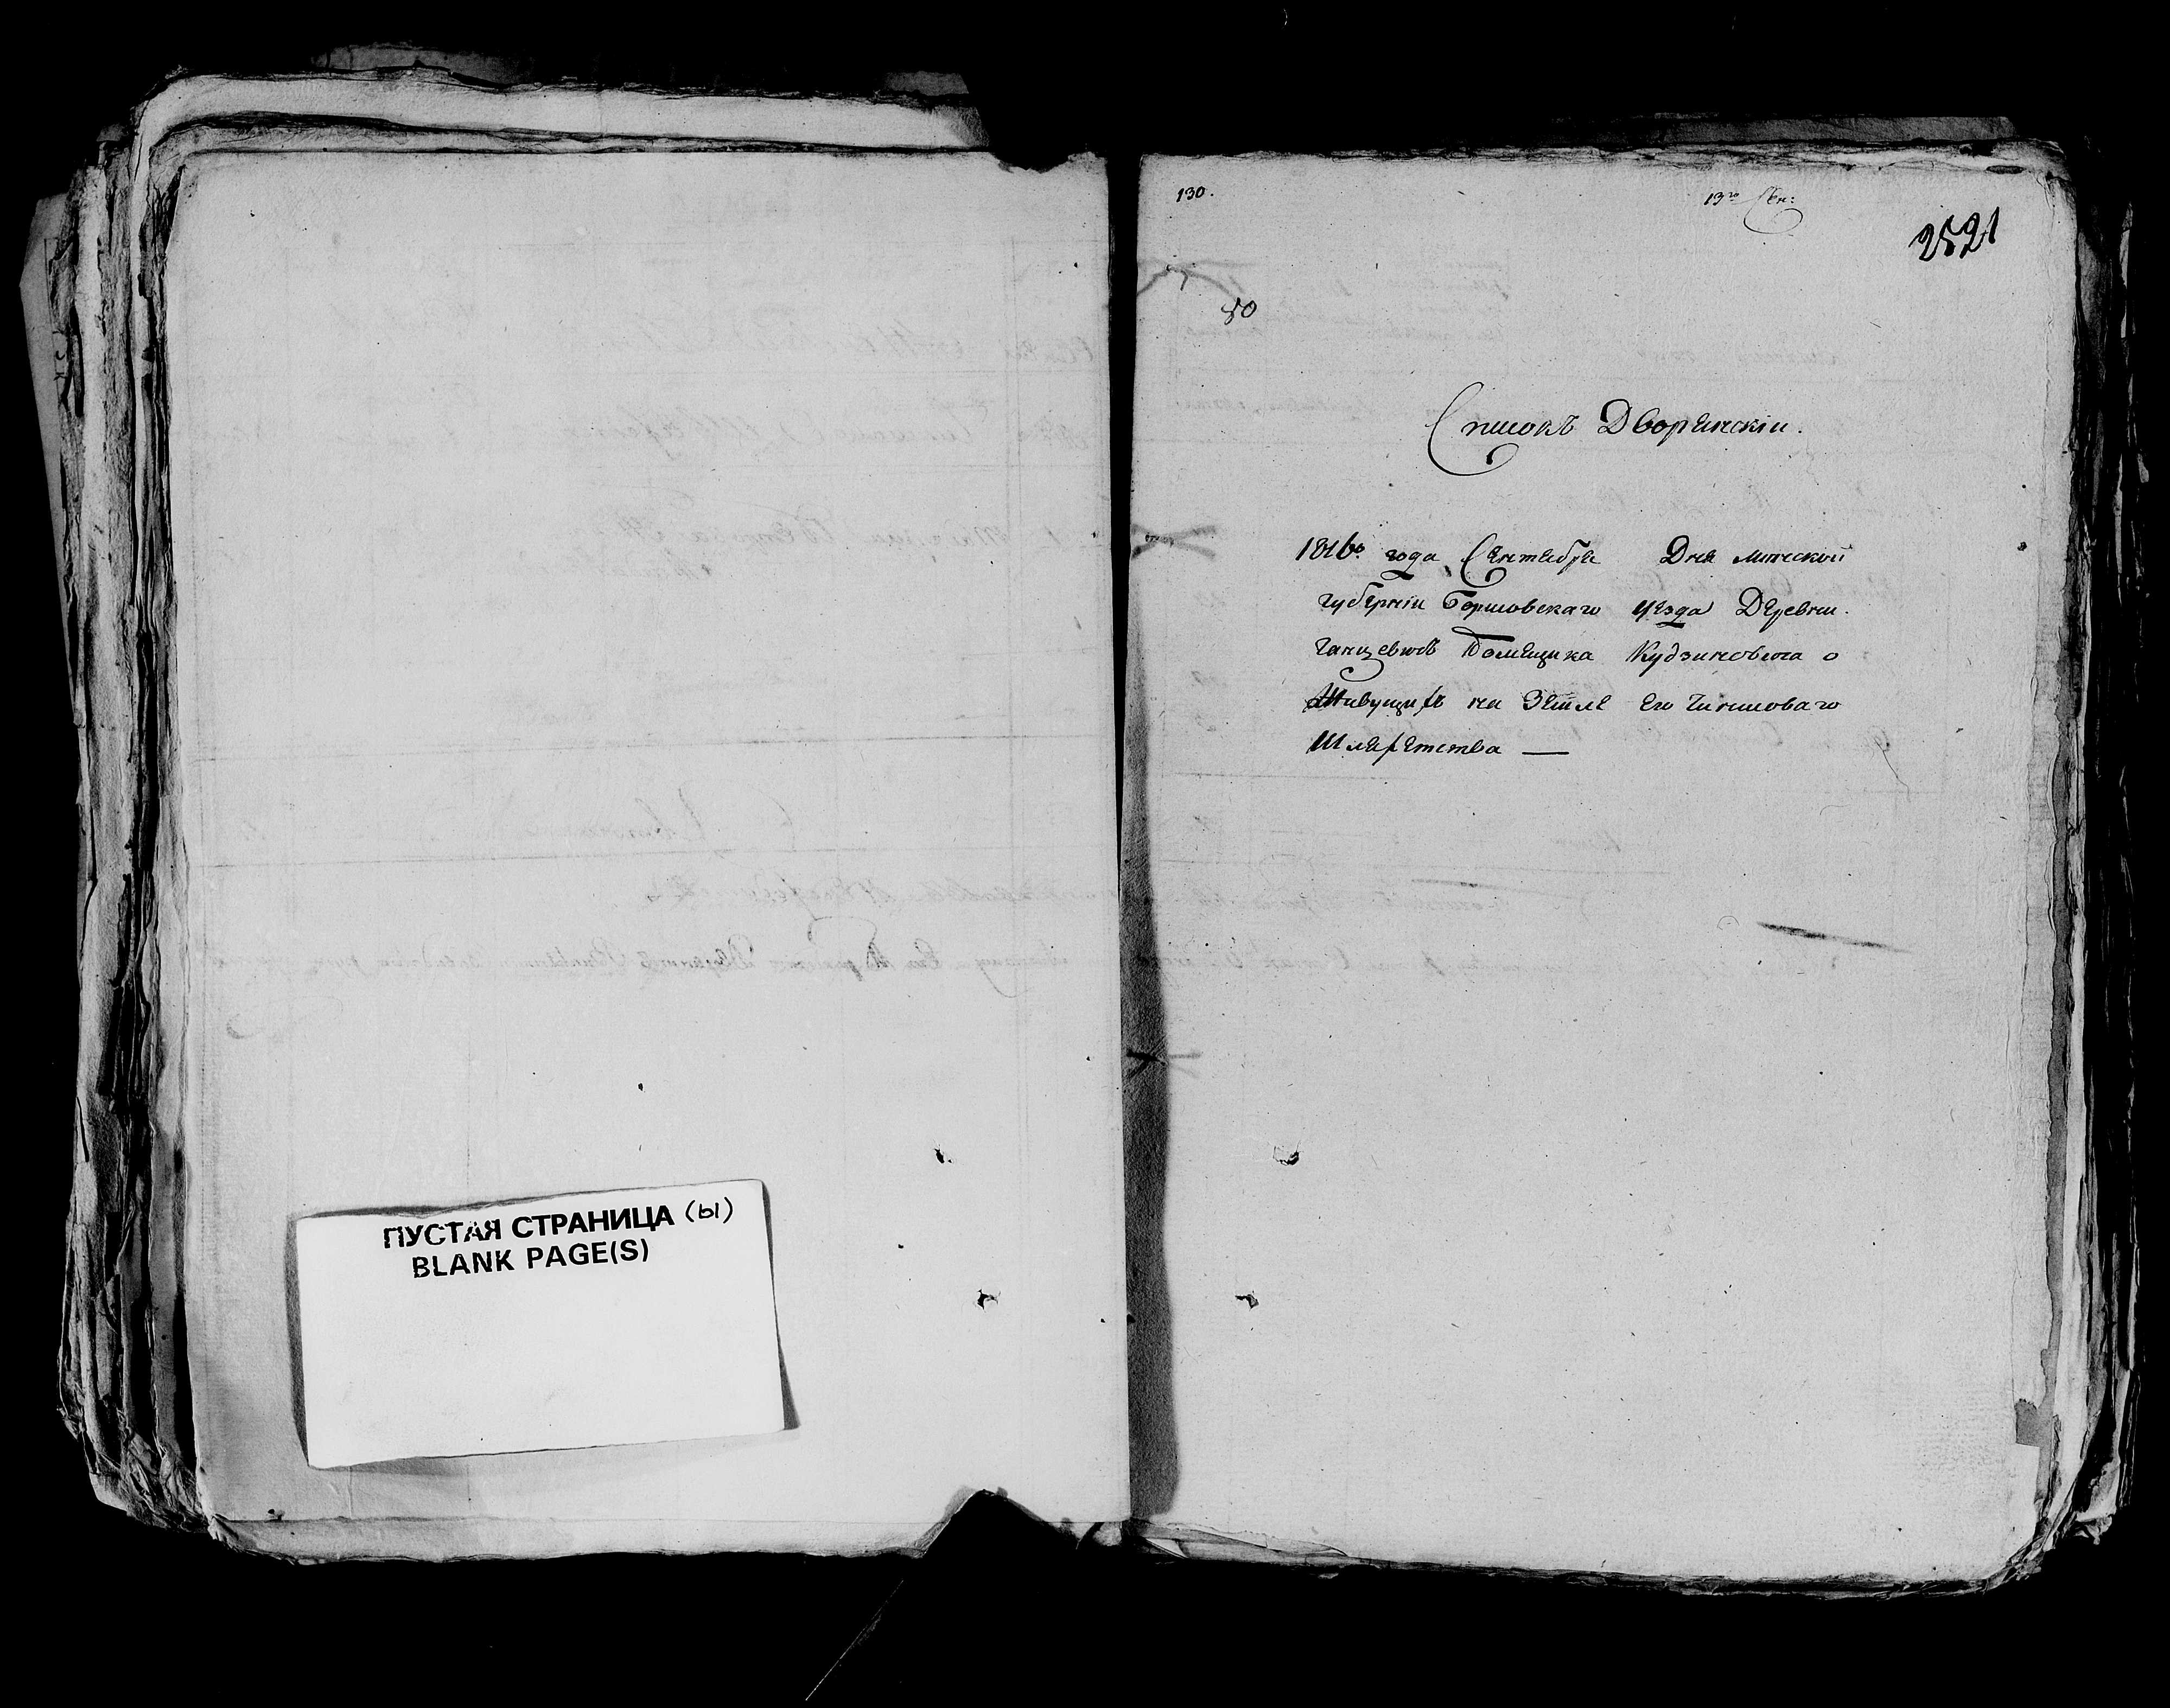 ПУСТАЯ СТРАНИЦА (ы)
BLANK PAGE(S)
130.
13го Сен:
2521
50
Списокъ Дворянскіи.
1816го года Сентебря Дня минской
губерніи Борисовскаго уезда Деревни
Ганцевичъ Помещика Кудзиновича о
Живущихъ на Земле Его Чиншоваго
Шляхетства —